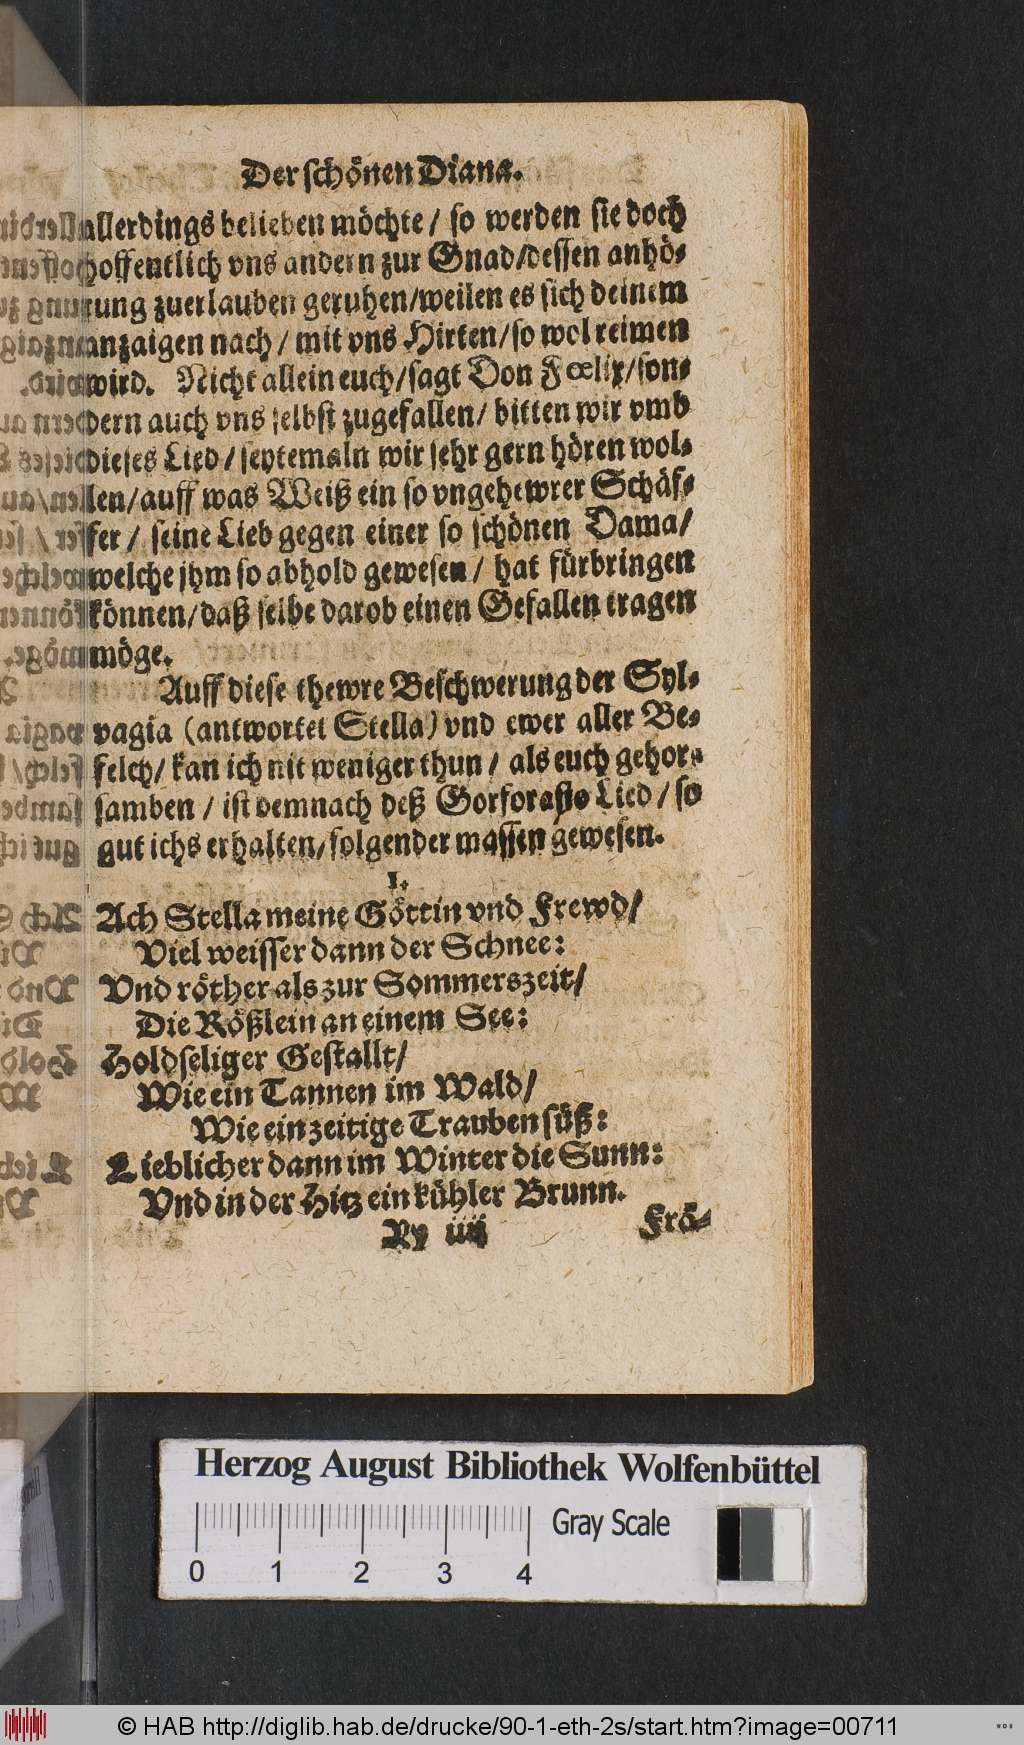 Der schönen Diana.
allerdings belieben möchte / so werden sie doch
hoffentlich vns andern zur Gnad/dessen anhö-
rung zuerlauben geruhen/weilen es sich deinem
anzaigen nach / mit vns Hirten/so wol reimen
wird. Nicht allein euch/sagt Don Fœlix/son-
dern auch vns selbst zugefallen/ bitten wir vmb
dieses Lied / seytemaln wir sehr gern hören wol-
len/auff was Weiß ein so vngehewrer Schäf-
fer / seine Lieb gegen einer so schönen Dama/
welche jhm so abhold gewesen / hat fürbringen
können/daß selbe darob einen Gefallen tragen
möge.
Auff diese thewre Beschwerung der Syl-
vagia (antwortet Stella) vnd ewer aller Be-
felch/ kan ich nit weniger thun / als euch gehor-
samben / ist demnach deß Gorforasto Lied / so
gut ichs erhalten/folgender massen gewesen.
1.
Ach Stella meine Göttin vnd Frewd/
Viel weisser dann der Schnee:
Vnd röther als zur Sommerszeit/
Die Rößlein an einem See:
Holdseliger Gestallt/
Wie ein Tannen im Wald/
Wie ein zeitige Trauben süß:
Lieblicher dann im Winter die Sunn:
Vnd in der Hitz ein kühler Brunn.
Yy iiij Frö-
Herzog August Bibliothek Wolfenbüttel
Gray Scale
0 1 2 3 4
© HAB http://diglib.hab.de/drucke/90-1-eth-2s/start.htm?image=00711